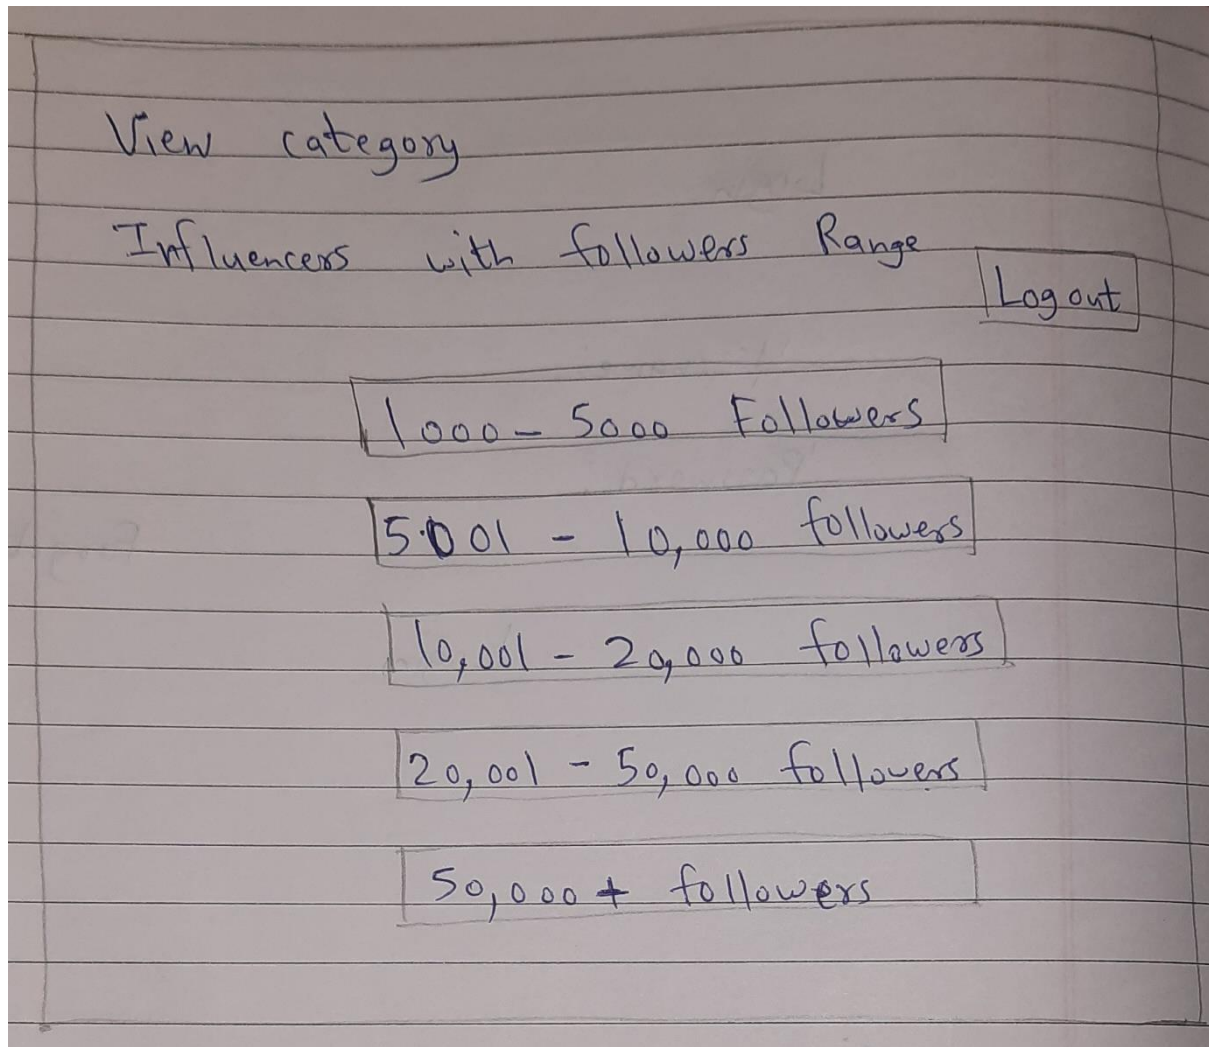 View category
Influencers with followers Range
Log out
1000 - 5000 Followers
5001 - 10,000 followers
10,001 - 20,000 followers
20,001 - 50,000 followers
50,000 + followers